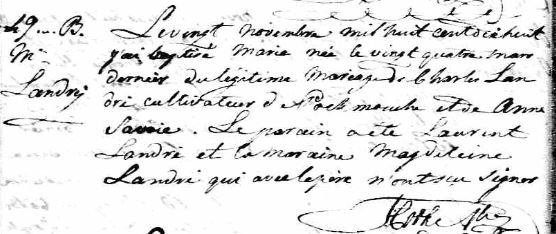 49... B.
Mie
Landry
Le vingt novembre mil huit cent dix huit
j'ai baptisé Marie née le vingt quatre mars
dernier du légitime mareage de Charles Lan
dré cultivateur d et de Anne
Savoie. Le parain a été Laurent
Landré et la maraine Magdeleine
Landré qui avec le père n'ont su signer